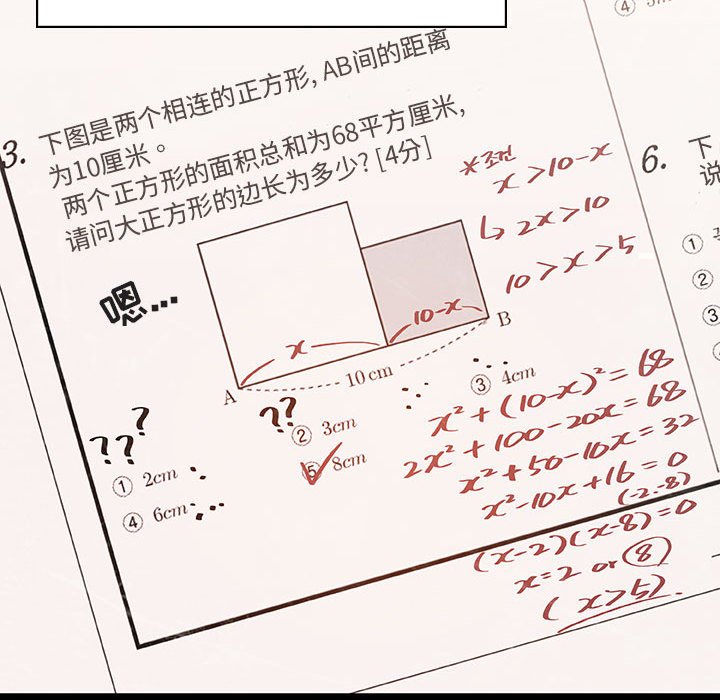 3. 下图是两个相连的正方形, AB间的距离
为10厘米。
两个正方形的面积总和为68平方厘米,
请问大正方形的边长为多少? [4分]
嗯…
x
10-x
A
10 cm
B
???
??
① 2cm
② 3cm
③ 4cm
④ 6cm
⑤ 8cm
*조건
x > 10-x
↳ 2x > 10
10 > x > 5
x² + (10-x)² = 68
2x² + 100 - 20x = 68
x² + 50 - 10x = 32
x² - 10x + 16 = 0
(-2. -8)
(x-2)(x-8) = 0
x = 2 or 8
(x>5).
④
6. 下
说
①
②
③